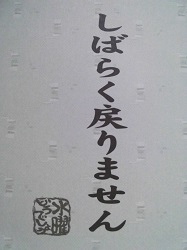 しばらく戻りません
水曜
どうでしょう